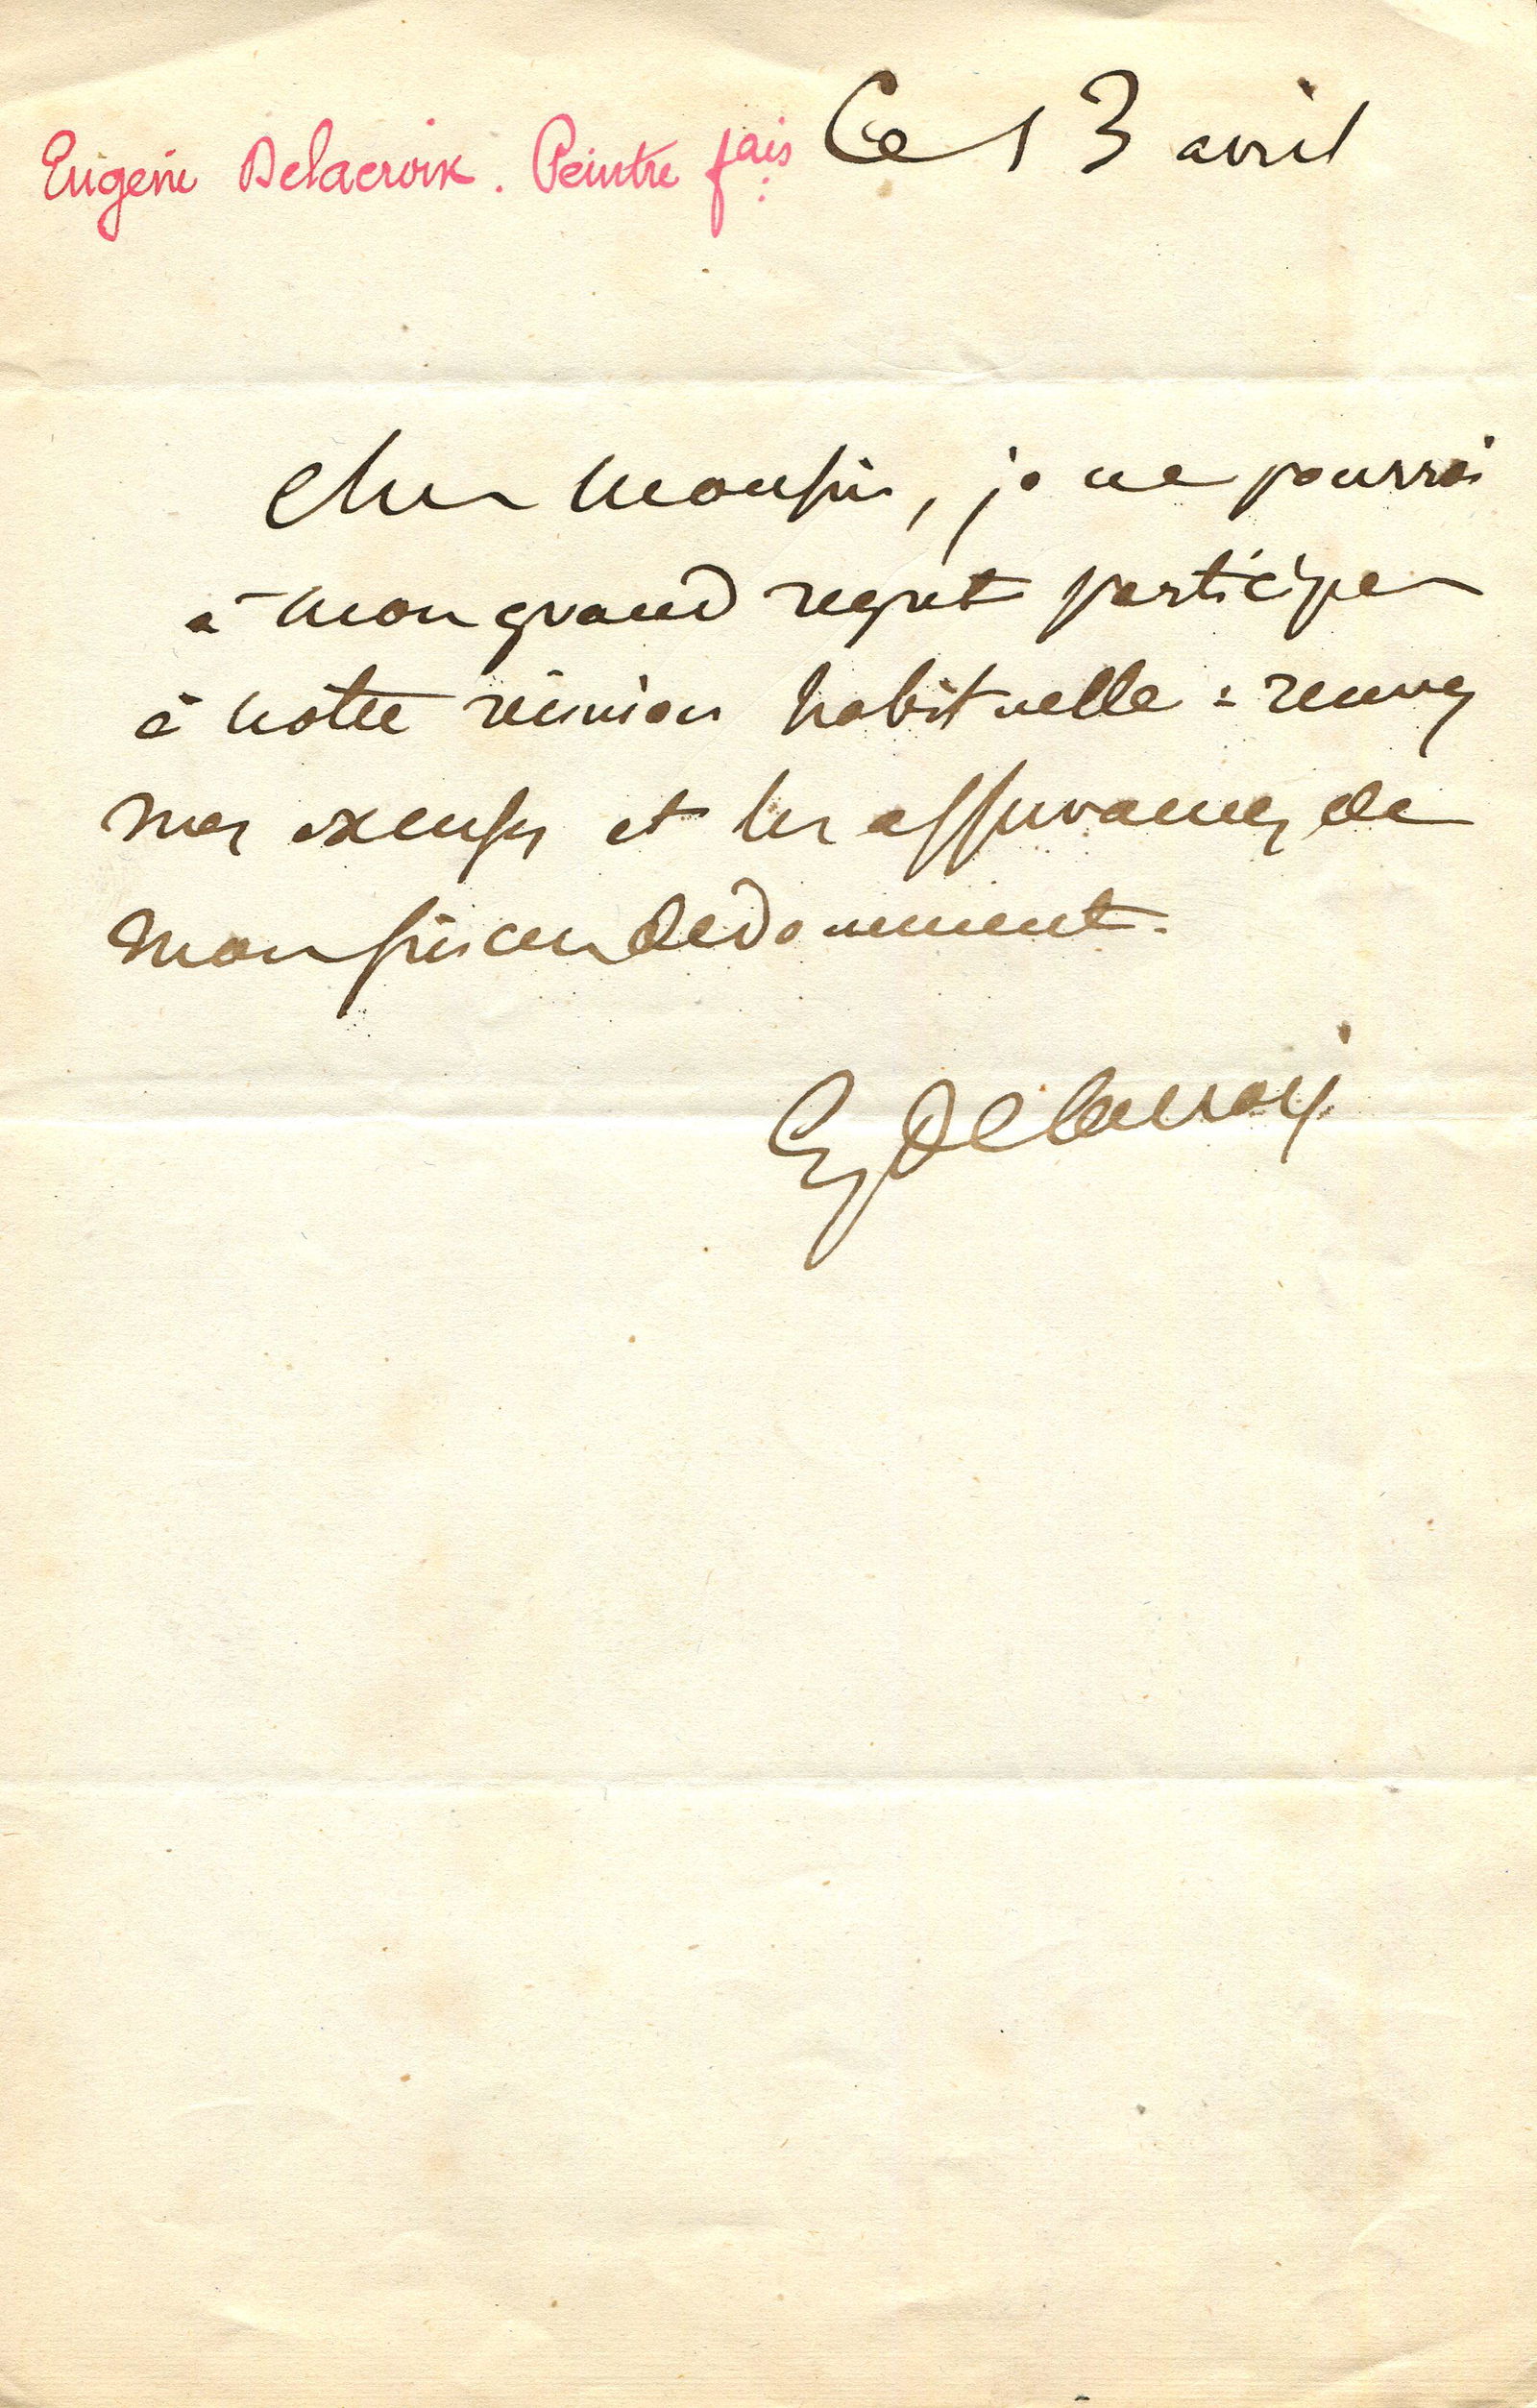 Eugène Delacroix. Peintre fais
Ce 13 avril
Cher Monsieur, je ne pourrai
à mon grand regret participer
à notre réunion habituelle : recevez
mes excuses et les assurances de
mon sincère dévouement.
Eg Delacroix